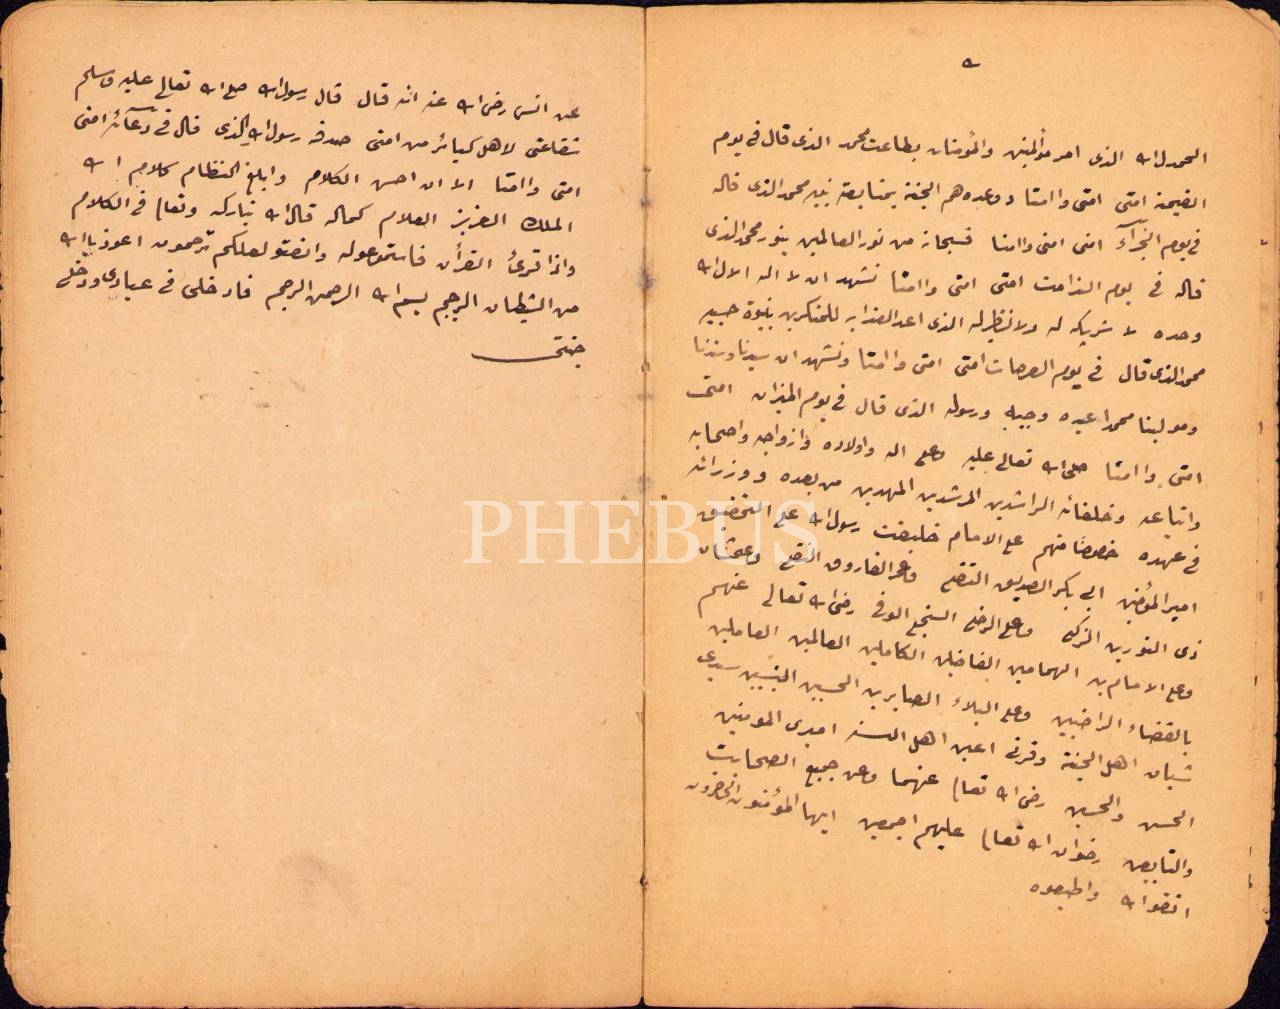 الحمد لله الذى امر مؤلمنين والمؤمنات بطاعت محمد الذى قال فى يوم
القيمة امتى امتى واامتا ووعدهم الجنة بمتابعة نبيه محمد الذى قاله
فى يوم الجزآء امتى امتى واامتا فسبحانه من نور العالمين بنور محمد الذى
قاله فى يوم الندامت امتى امتى واامتا نشهد ان لا اله الا الله
وحده لا شريكه له ولا نظير له الذى اعد العذاب للمنكرين بنبوة حبيبه
محمد الذى قال فى يوم العرصات امتى امتى واامتا ونشهد ان سيدنا وسندنا
ومولينا محمدا عبده وحبيبه ورسوله الذى قال فى يوم الميزان امتى
امتى واامتا صلى الله تعالى عليه وعلى اله واولاده وازواجه واصحابه
واتباعه وخلفائه الراشدين المرشدين المهديين من بعده ووزرائه
فى عهده خصوصا منهم على الامام خليفت رسول الله على التحقيق
امير المؤمنين ابى بكر الصديق التقى وعمر الفاروق النقى وعثمان
ذى النورين الزكى وعلى الرضى السخى الوفى رضى الله تعالى عنهم
وعلى الامامين الهمامين الفاضلين الكاملين العالمين العاملين
بالقضاء الراضيين وعلى البلاء الصابرين الحسيبين النسيبين سيدى
شبان اهل الجنة وقرتى اعين اهل السنه اميرى المومنين
الحسن والحسين رضى الله تعالى عنهما وعن جميع الصحابت
والتابعين رضوان الله تعالى عليهم اجمعين ايها المؤمنون الحاضرون
اتقوا الله واطيعوه
عن انس رضى الله عنه انه قال قال رسول الله صلى الله تعالى عليه وسلم
شفاعتى لاهل كبائر من امتى صدق رسول الله الذى قال فى دعآئه امتى
امتى واامتا الا ان احسن الكلام وابلغ النظام كلام الله
الملك العزيز العلام كماله قال الله تباركه وتعالى فى الكلام
واذا قرئ القرأن فاستمعوله وانصتو لعلكم ترحمون اعوذ بالله
من الشيطان الرجيم بسم الله الرحمن الرحيم فادخلى فى عبادى وادخلى
جنتى
PHEBUS